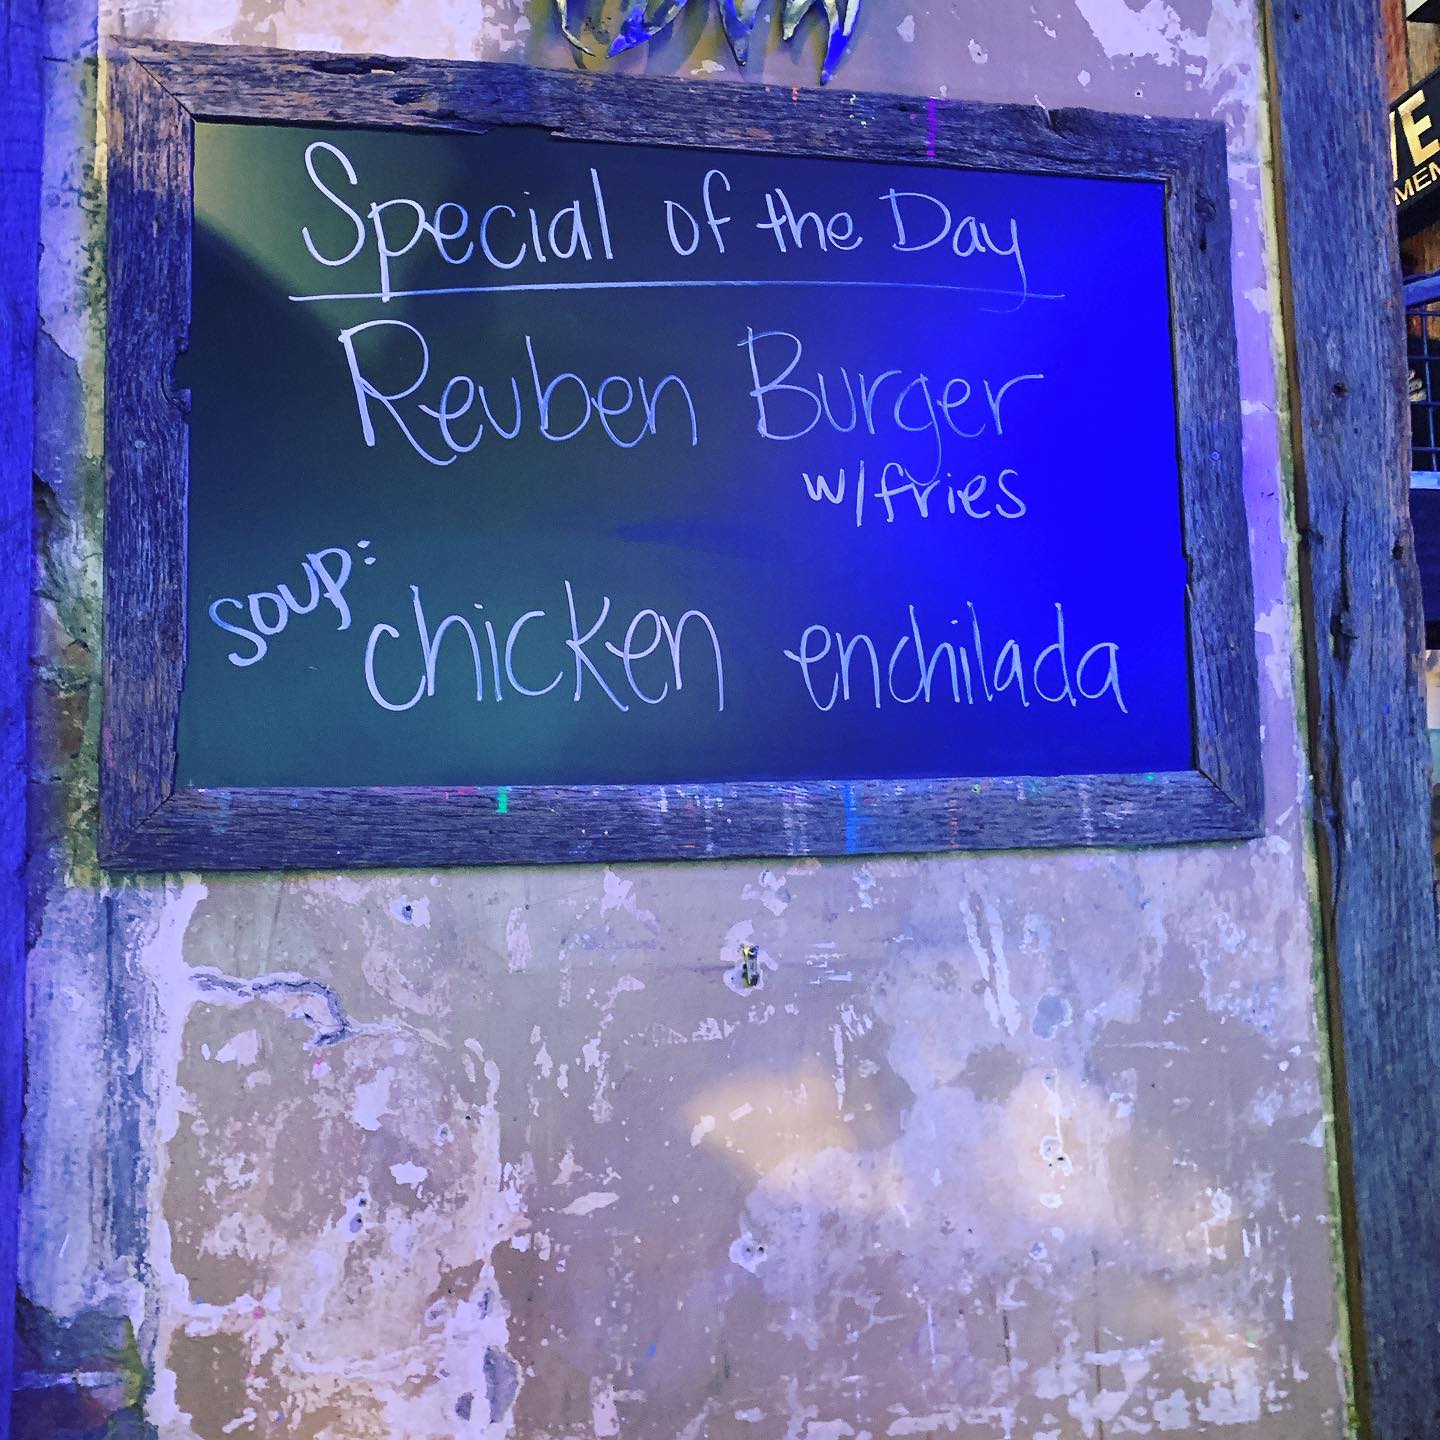 Special of the Day
Reuben Burger
w/fries
soup:
chicken enchilada